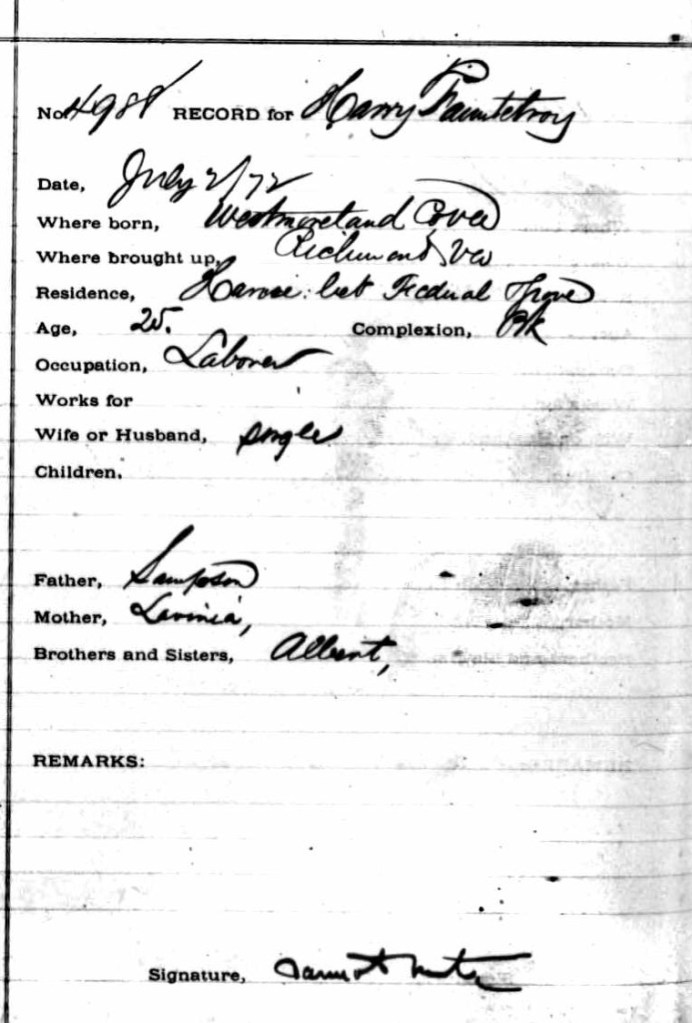 No. 4988 RECORD for Harry Fauntelroy
Date, July 2/72
Where born, Westmoreland Co Va
Where brought up, Richmond Va
Residence, bet Federal Grove
Age, 25. Complexion, Blk
Occupation, Laborer
Works for
Wife or Husband, single
Children,
Father, Sampson
Mother, Lavinia,
Brothers and Sisters, Albert,
REMARKS:
Signature, cannot write